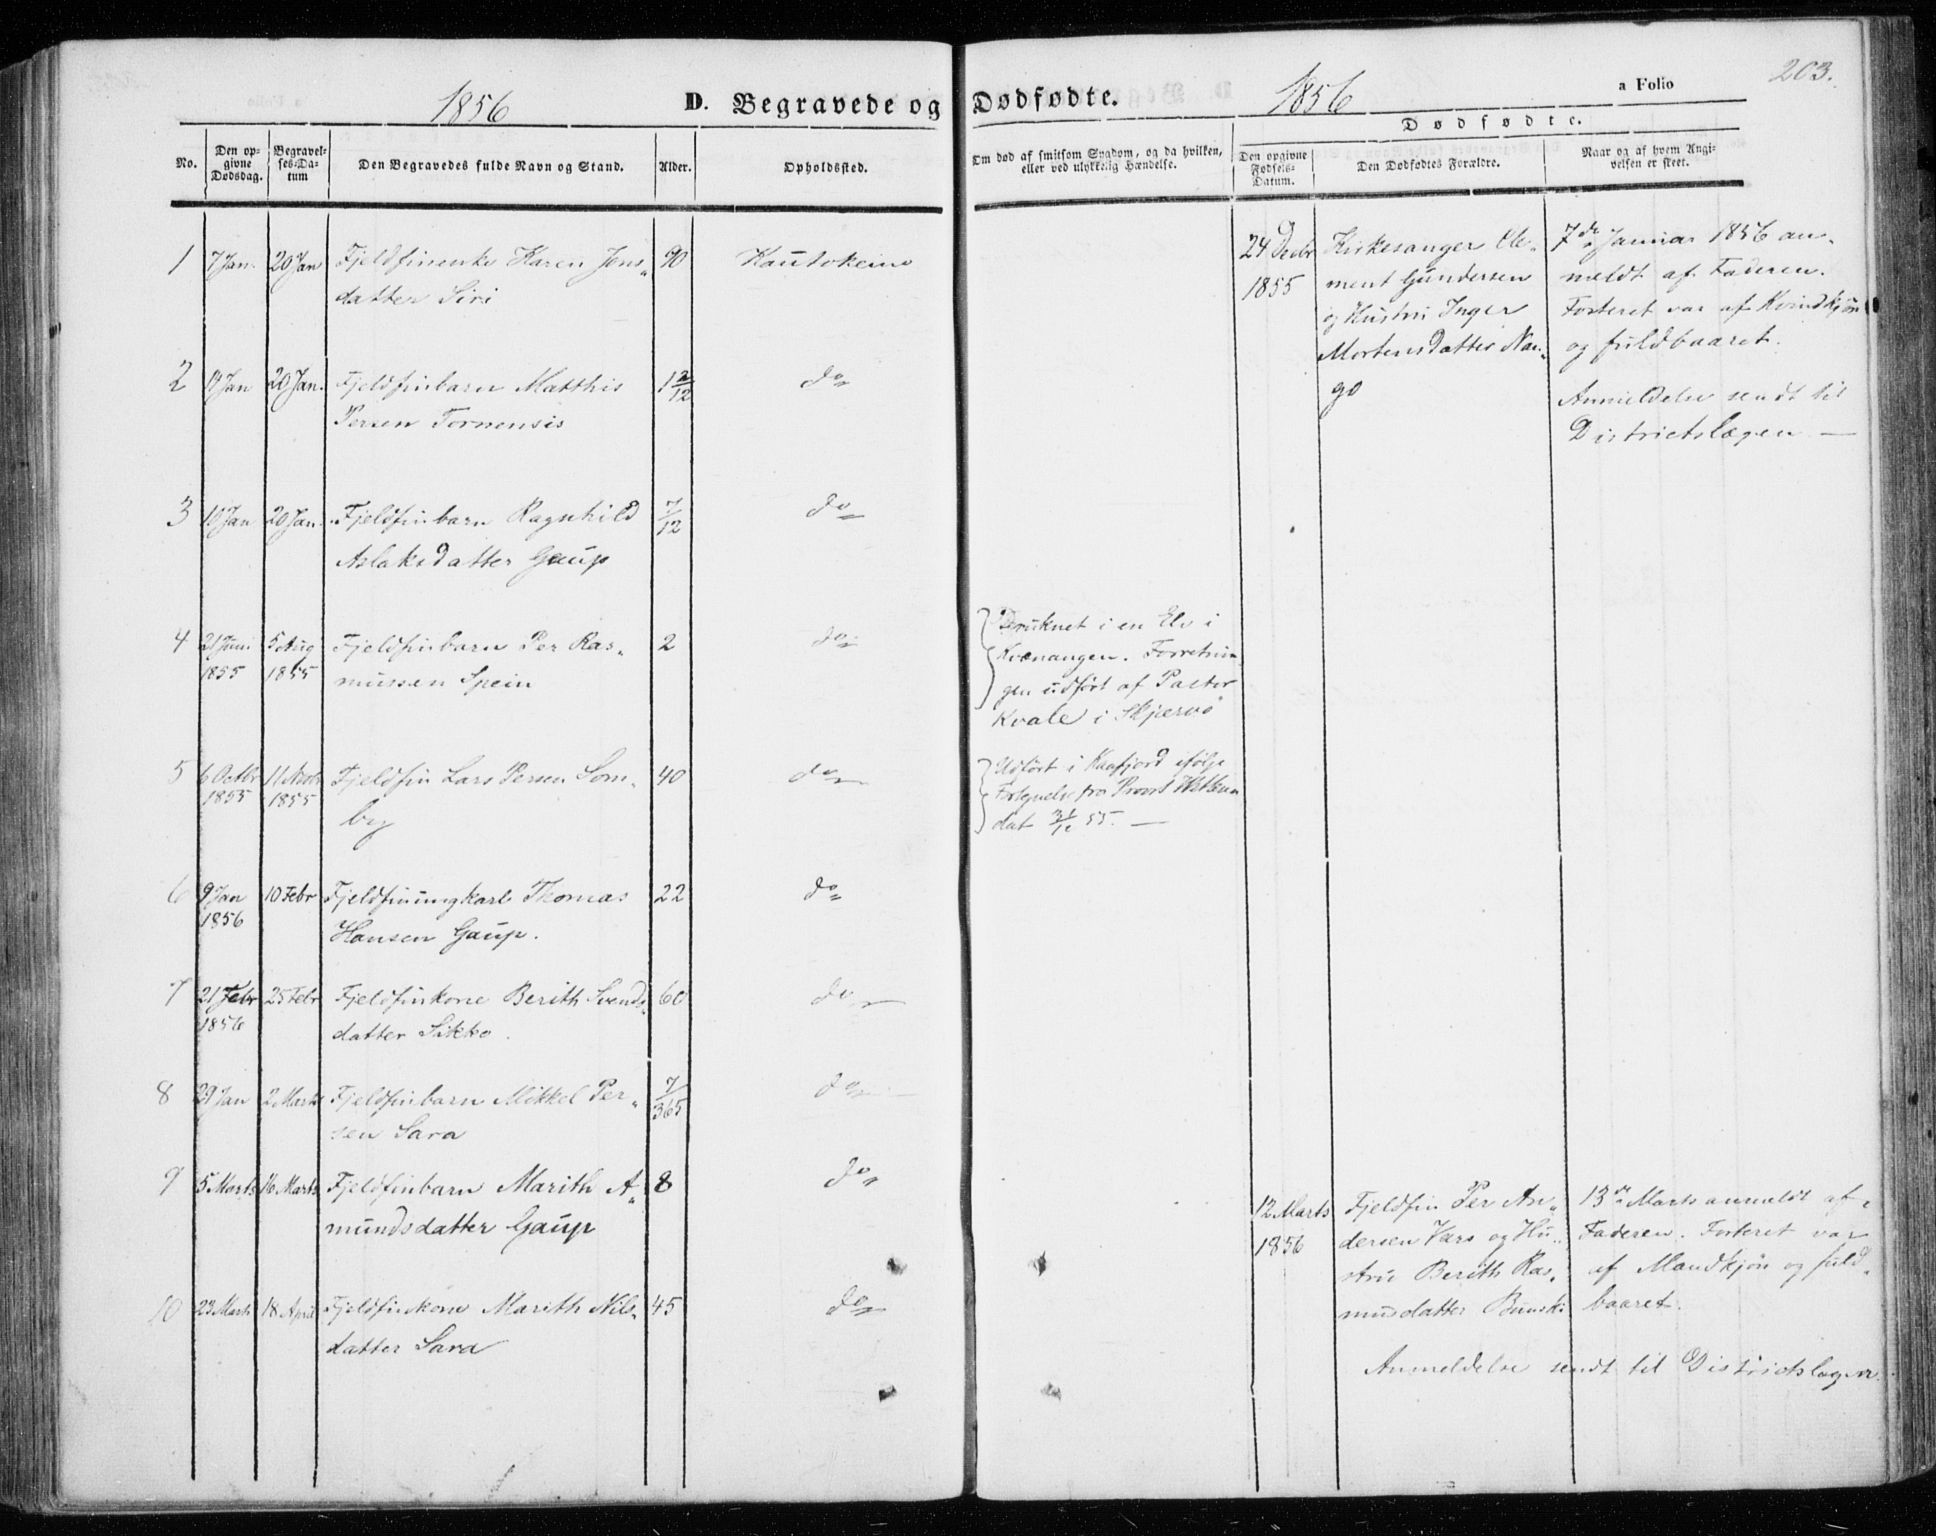 1856 D. Begravede og Dødfødte. 1856 a Folio 203.
No.
Den op-
givne
Dødsdag.
Begravel-
ses-Da-
tum
Den Begravedes fulde Navn og Stand.
Alder.
Opholdssted.
Om død af smitsom Sygdom, og da hvilken,
eller ved ulykkelig Hændelse.
Dødfødte.
Den opgivne
Fødsels-
Datum.
Den Dødfødtes Forældre.
Naar og af hvem Angi-
velsen er skeet.
1 7 Jan. 20 Jan Fjeldfinenke Karen Jons- 90 Kautokeino
datter Siri
2 14 Jan 20 Jan. Fjeldfinbarn Matthis 1 2/12 do
Persen Tornensis
3 10 Jan 20 Jan. Fjeldfinbarn Ragnhild 7/12 do
Aslaksdatter Gaup
4 21 Juni 5 Aug Fjeldfinbarn Per Ras- 2 do
1855 1855 mussen Spein
Druknet i en Elv i
Kvænangen. Forretnin
gen udført af Pastor
Kvale i Skjervø
5 6 Octbr 11 Novbr Fjeldfin Lars Persen Som- 40 do
1855 1855 by
Udført i Kaafjord ifølge
fra Provst
dat 31/12 55.
6 9 Jan 10 Febr Fjeldfinungkarl Thomas 22 do
1856 Hansen Gaup.
7 21 Febr 25 Febr Fjeldfinkone Berith Svends- 60 do
1856 datter Sikko.
8 29 Jan 2 Marts Fjeldfinbarn Mikkel Per- 7/365 do
sen Sara
9 5 Marts 16 Marts Fjeldfinbarn Marith A- 8 do
mundsdatter Gaup
10 23 Marts 18 April Fjeldfinkone Marith Nils- 45 do
datter Sara
24 Decbr
1855
Kirkesanger Cle-
ment Gundersen
og Hustru Inger
Mortensdatter Nan-
go
7de Januar 1856 an-
meldt af Faderen.
Fosteret var af Kvindkjøn
og fuldbaaret.
Anmeldelse sendt til
Districtslægen
12 Marts
1856
Fjeldfin Per An-
dersen Vars og Hu-
stru Berith Ras-
musdatter Bunski
13de Marts anmeldt af
Faderen. Fosteret var
af Mandkjøn og fuld-
baaret.
Anmeldelse sendt til Districtslægen.